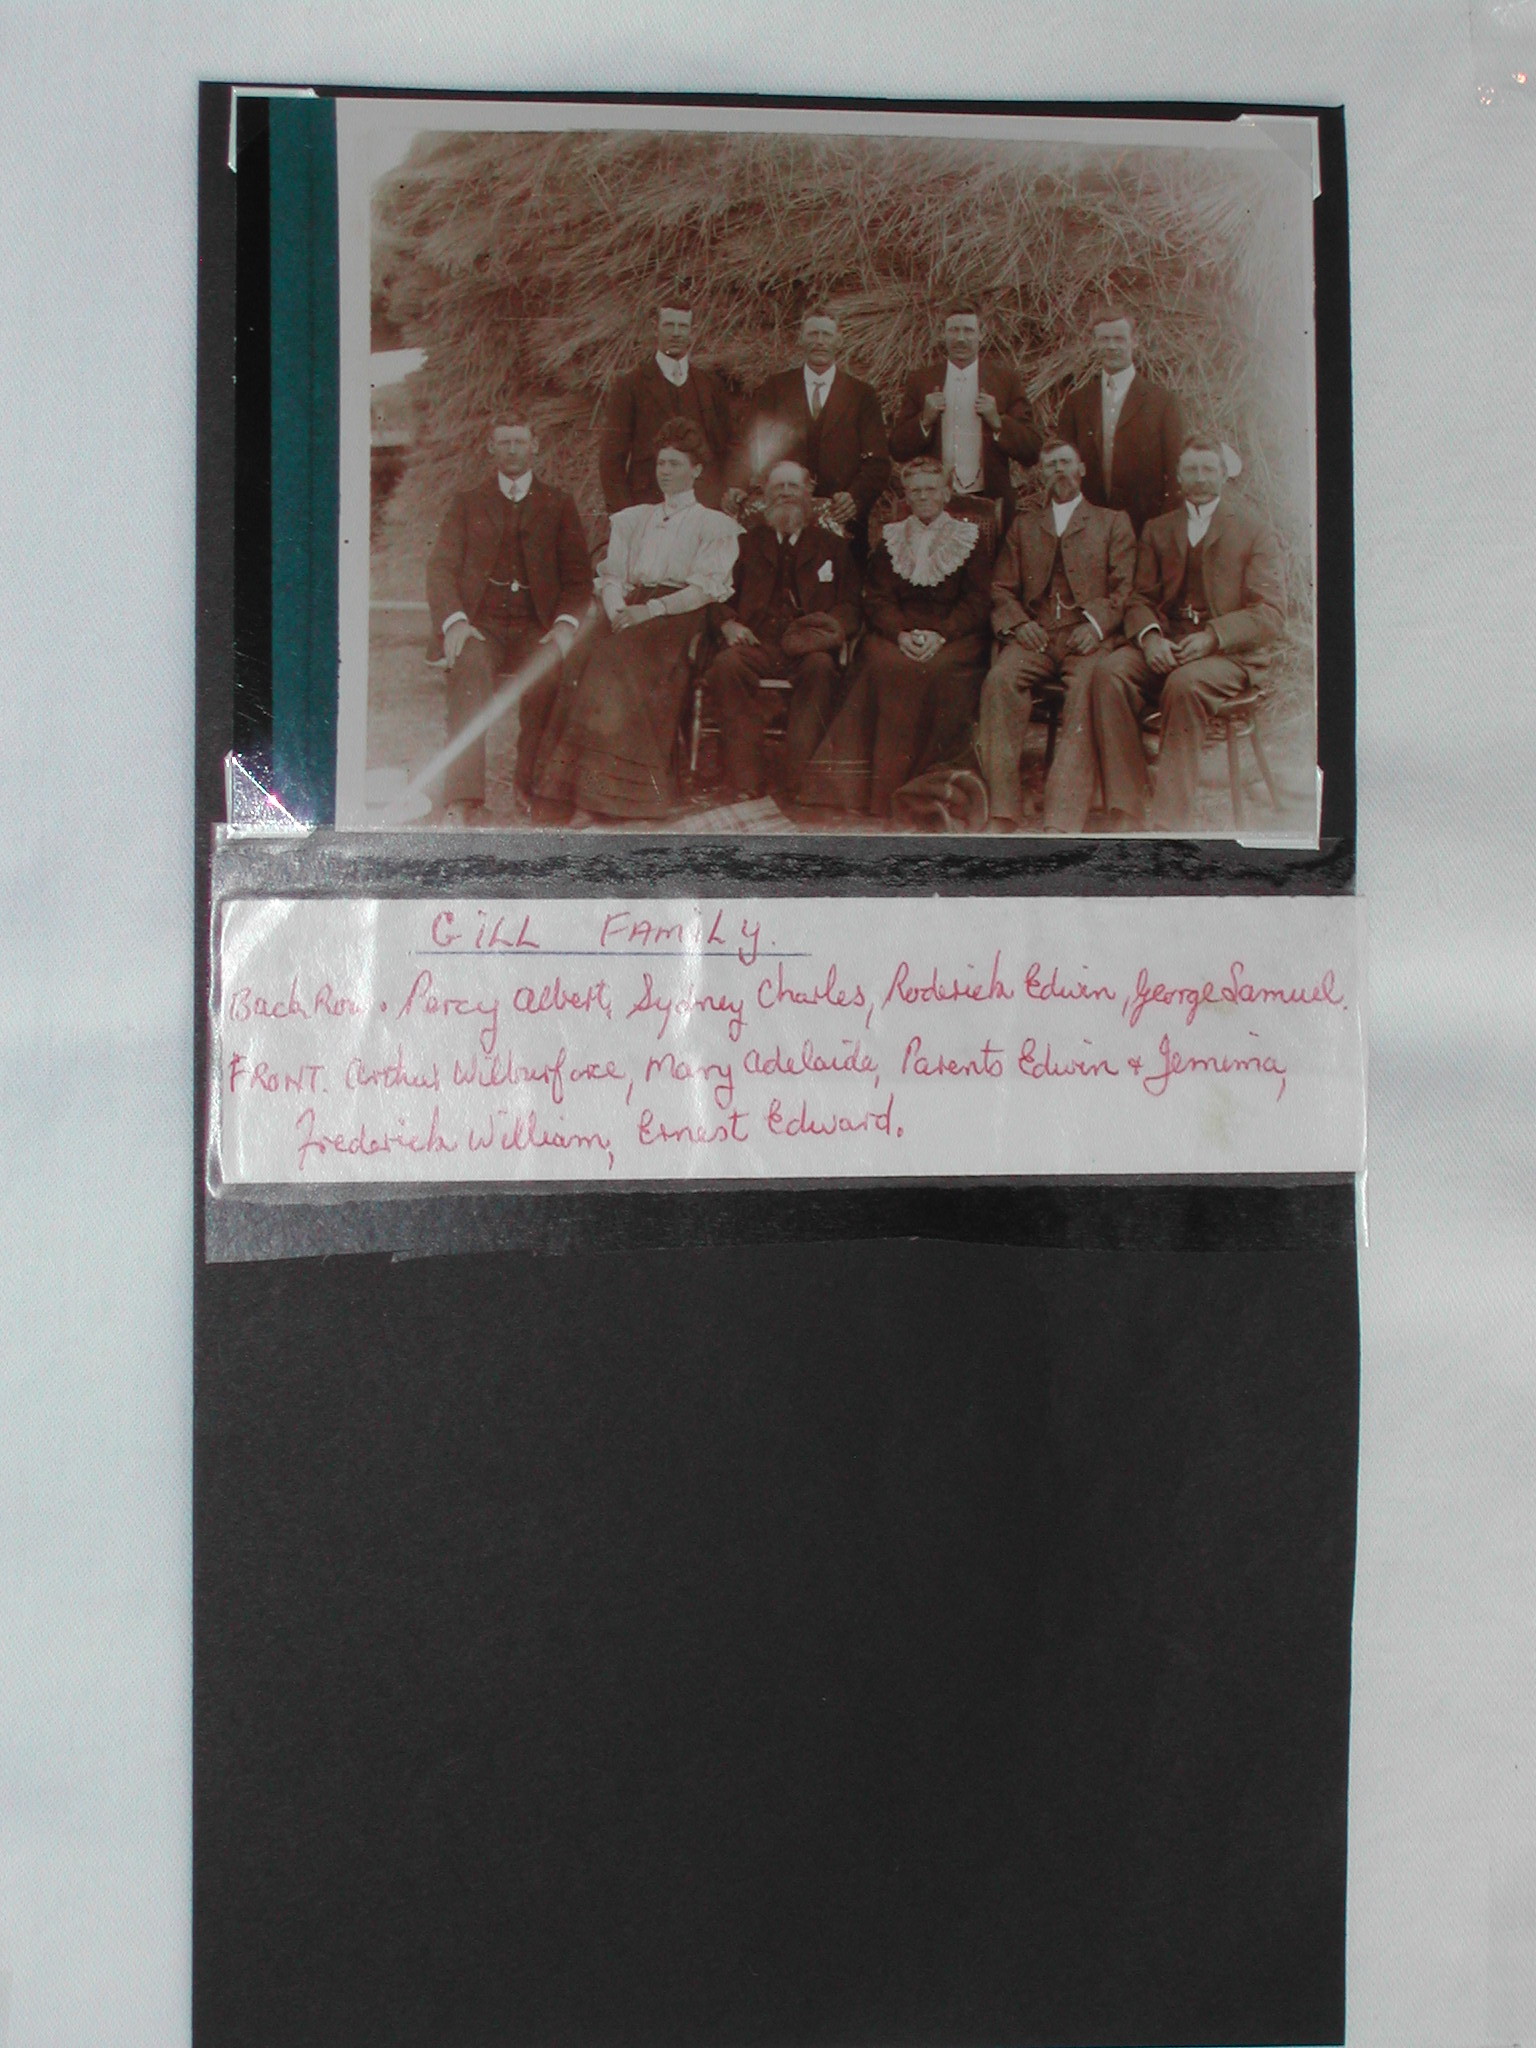 GILL FAMILY.
Back Row. Percy Albert, Sydney Charles, Roderick Edwin, George Samuel.
FRONT. Arthur Wilburforce, Mary Adelaide, Parents Edwin & Jemima,
Frederick William, Ernest Edward.